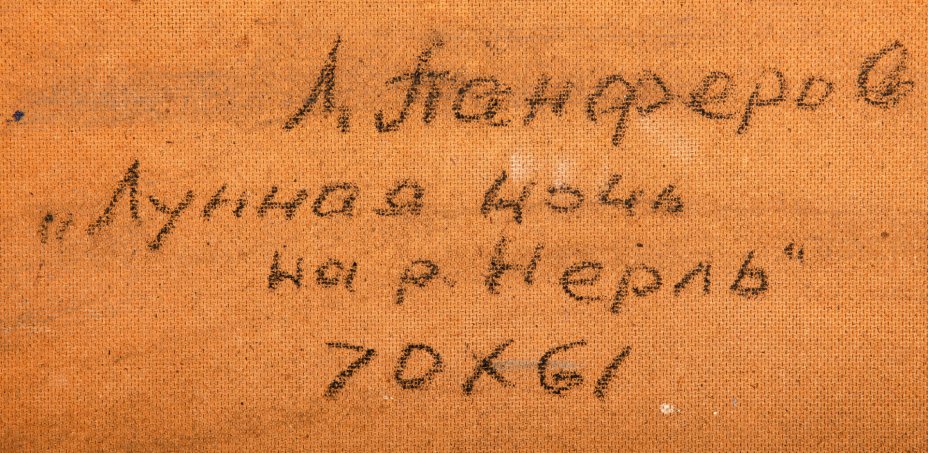 Л. Панферов
„Лунная ночь
на р. Нерль"
70х61